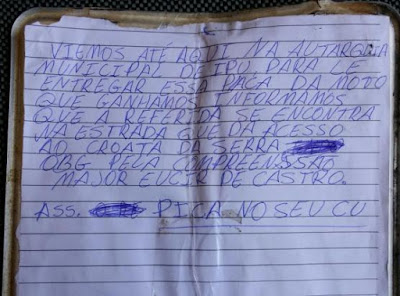 VIEMOS ATÉ AQUI NA AUTARQUIA
MUNICIPAL DE IPU PARA LE
ENTREGAR ESSA PACA DA MOTO
QUE GANHAMOS INFORMAMOS
QUE A REFERIDA SE ENCONTRA
NA ESTRADA QUE DA ACESSO
AO CROATA DA SERRA
OBG PELA COMPREENSSÃO
MAJOR EUCIR DE CASTRO.
ASS. PICA NO SEU CU